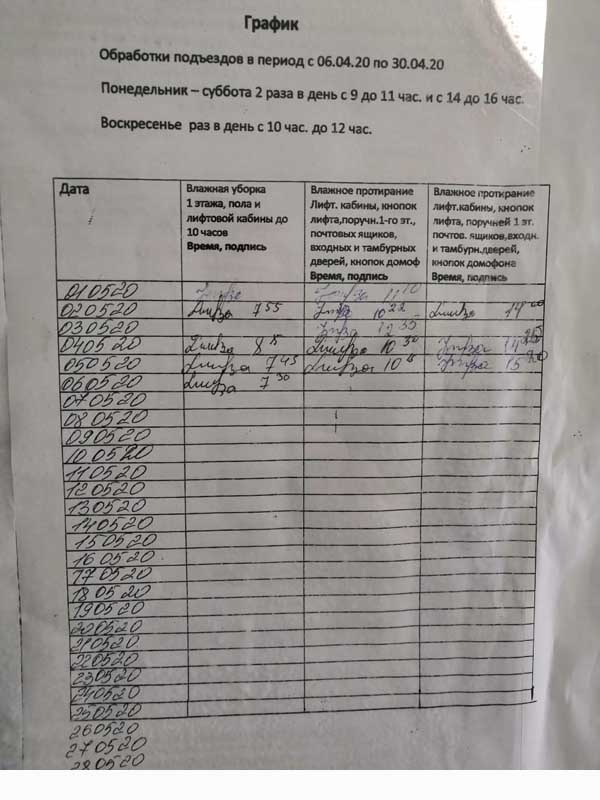 График
Обработки подъездов в период с 06.04.20 по 30.04.20
Понедельник – суббота 2 раза в день с 9 до 11 час. и с 14 до 16 час.
Воскресенье раз в день с 10 час. до 12 час.
Дата
Влажная уборка
1 этажа, пола и
лифтовой кабины до
10 часов
Время, подпись
Влажное протирание
Лифт. кабины, кнопок
лифта,поручн.1-го эт.,
почтовых ящиков,
входных и тамбурных
дверей, кнопок домоф
Время, подпись
Влажное протирание
лифт.кабины, кнопок
лифта, поручней 1 эт.
почтов. ящиков,входн.
и тамбурн.дверей,
кнопок домофона
Время, подпись
010520
020520 7 55 10 22 14 00
030520
040520 8 15 10 30
050520 7 45 10 15
060520 7 30
070520
080520
090520
100520
110520
120520
130520
140520
150520
160520
170520
180520
190520
200520
210520
220520
230520
240520
250520
260520
270520
280520